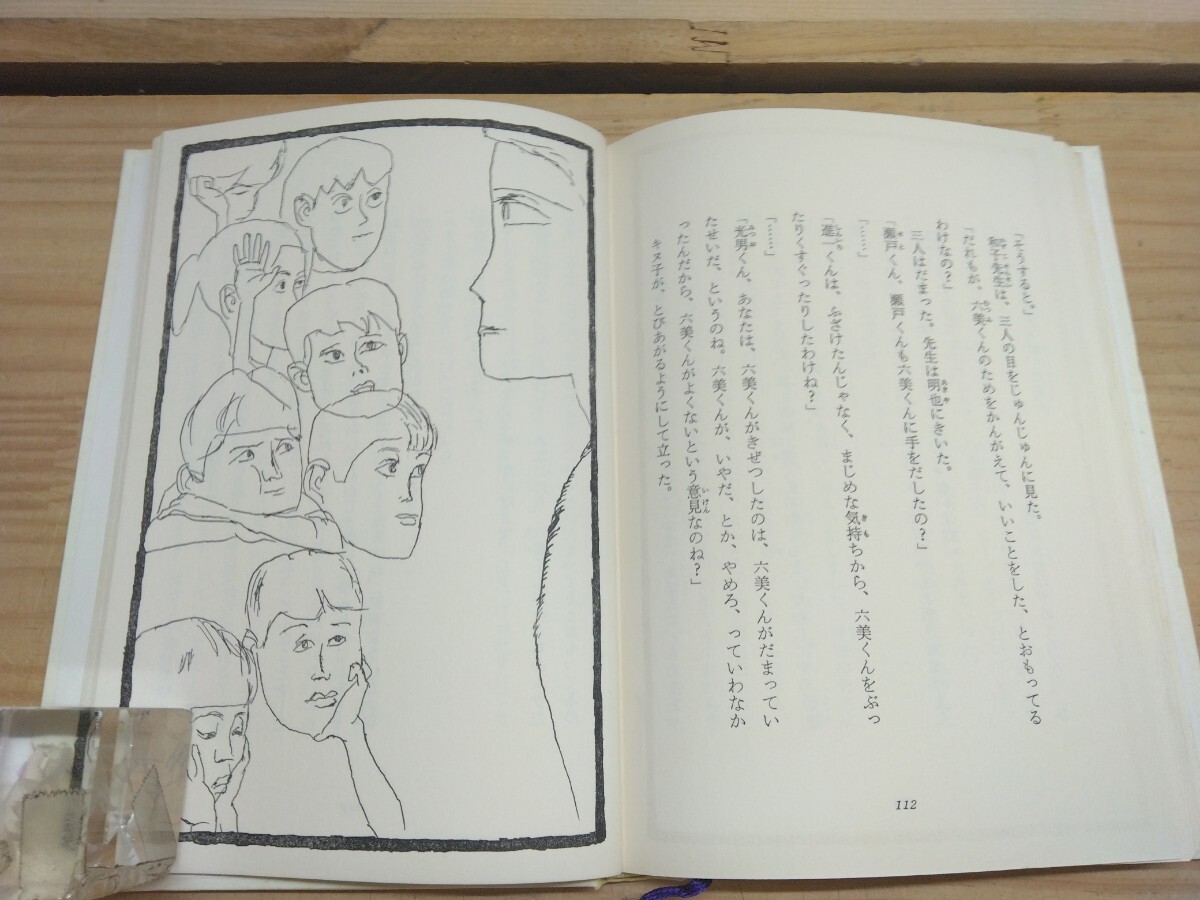 「そうすると。」
和子先生は、三人の目をじゅんじゅんに見た。
「だれもが、六美くんのためをかんがえて、いいことをした、とおもってる
わけなの？」
三人はだまった。先生は明也にきいた。
「瀬戸くん、瀬戸くんも六美くんに手をだしたの？」
「……」
「進一くんは、ふざけたんじゃなく、まじめな気持ちから、六美くんをぶっ
たりくすぐったりしたわけね？」
「……」
「光男くん、あなたは、六美くんがきぜつしたのは、六美くんがだまってい
たせいだ、というのね。六美くんが、いやだ、とか、やめろ、っていわなか
ったんだから、六美くんがよくないという意見なのね？」
キヌ子が、とびあがるようにして立った。
112